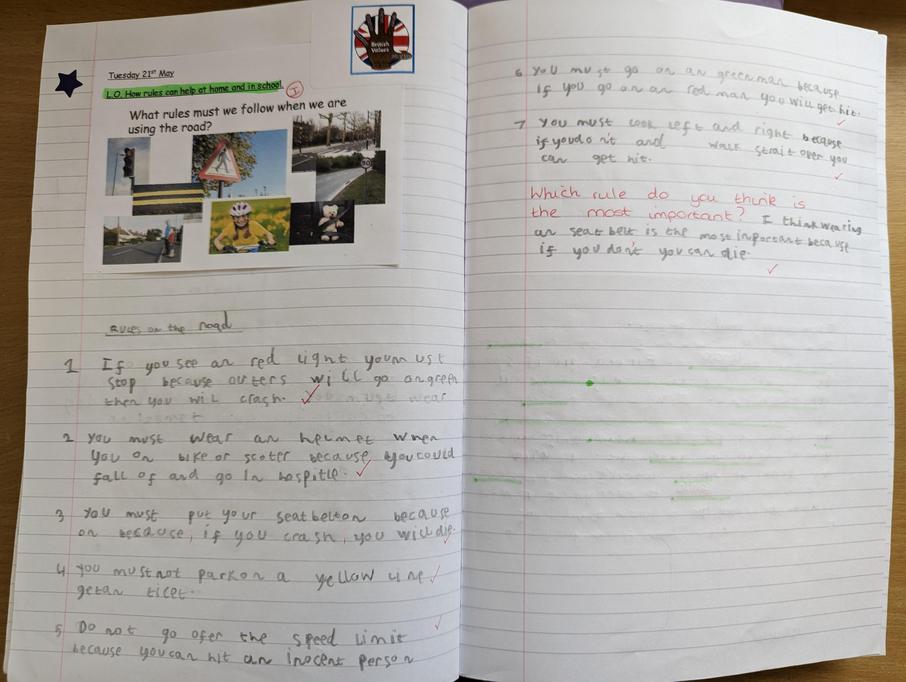 British
Values
Tuesday 21st May
L.O. How rules can help at home and in school.
I
What rules must we follow when we are
using the road?
Rules on the road
1 If you see an red light you must
stop because outers will go on green
then you will crash.
2 you must wear an helmet when
you on bike or scoter because you could
fall of and go in hospitle.
3 you must put your seatbelt on because
on because, if you crash, you will die.
4 you must not park on a yellow line
getan ticet.
5 Do not go ofer the speed limit
because you can hit an inocent person
6 you must go on an green man because
if you go on an red man you will get hit.
7 you must look left and right because
if you do n't and walk strait over you
can get hit.
Which rule do you think is
the most important? I think wearing
an seat belt is the most important because
if you don't you can die.